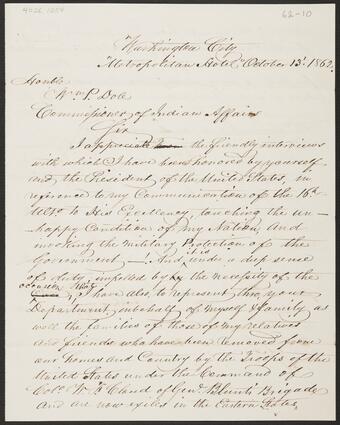 4026.1254
62-10
Washington City
Metropolitan Hotel October 13th 1862.
Honble
Wm P. Dole
Commissioner of Indian Affairs
Sir
I appreciate the friendly interviews
with which I have been honored by yourself
and the President of the United States, in
reference to my Communication of the 16th
Ulto to His Excellency, touching the un-
happy Condition of my Nation, and
invoking the Military Protection of the
Government — And, it is under a deep sense
of duty, impelled by the necessity of the
occasion that, I have also, to represent thro your
Department, in behalf of myself & family as
well the families of those of my relatives
and friends who have been removed from
our homes and Country by the Troops of the
United States under the Command of
Colo W. F. Cloud of Genl Blunt's Brigade
and are now exiles in the Eastern States,